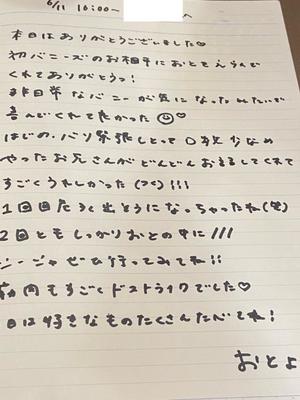 6/11 16:00~
へ
本日はありがとうございました♡
初バニーズのお相手におとをえらんで
くれてありがとう!
非日常なバニーが気になったみたいで
喜んでくれてよかった☺♡
はじめ、バリ緊張しとって口数少なめ
やったお兄さんがどんどんお話してくれて
すごくうれしかった(つ<)!!!
1回目危うく出そうになっちゃったね(笑)
2回ともしっかりおとの中に///
ジージャぜひ行ってみてね!!
筋肉もすごくドストライクでした♡
日は好きなものたくさんたべてね!
おとよ